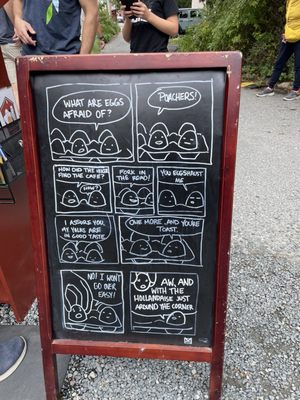 WHAT ARE EGGS
AFRAID OF?
POACHERS!
HOW DID YOU
FIND THE CAFE?
FORK IN
THE ROAD!
YOU EGGSHAUST
ME
I ASSURE YOU,
MY YOLKS ARE
IN GOOD
TASTE
ONE MORE, AND YOU'RE
TOAST.
NO! I WON'T
GO OVER
EASY!
AW, AND
WITH THE
HOLLANDAISE JUST
AROUND THE CORNER